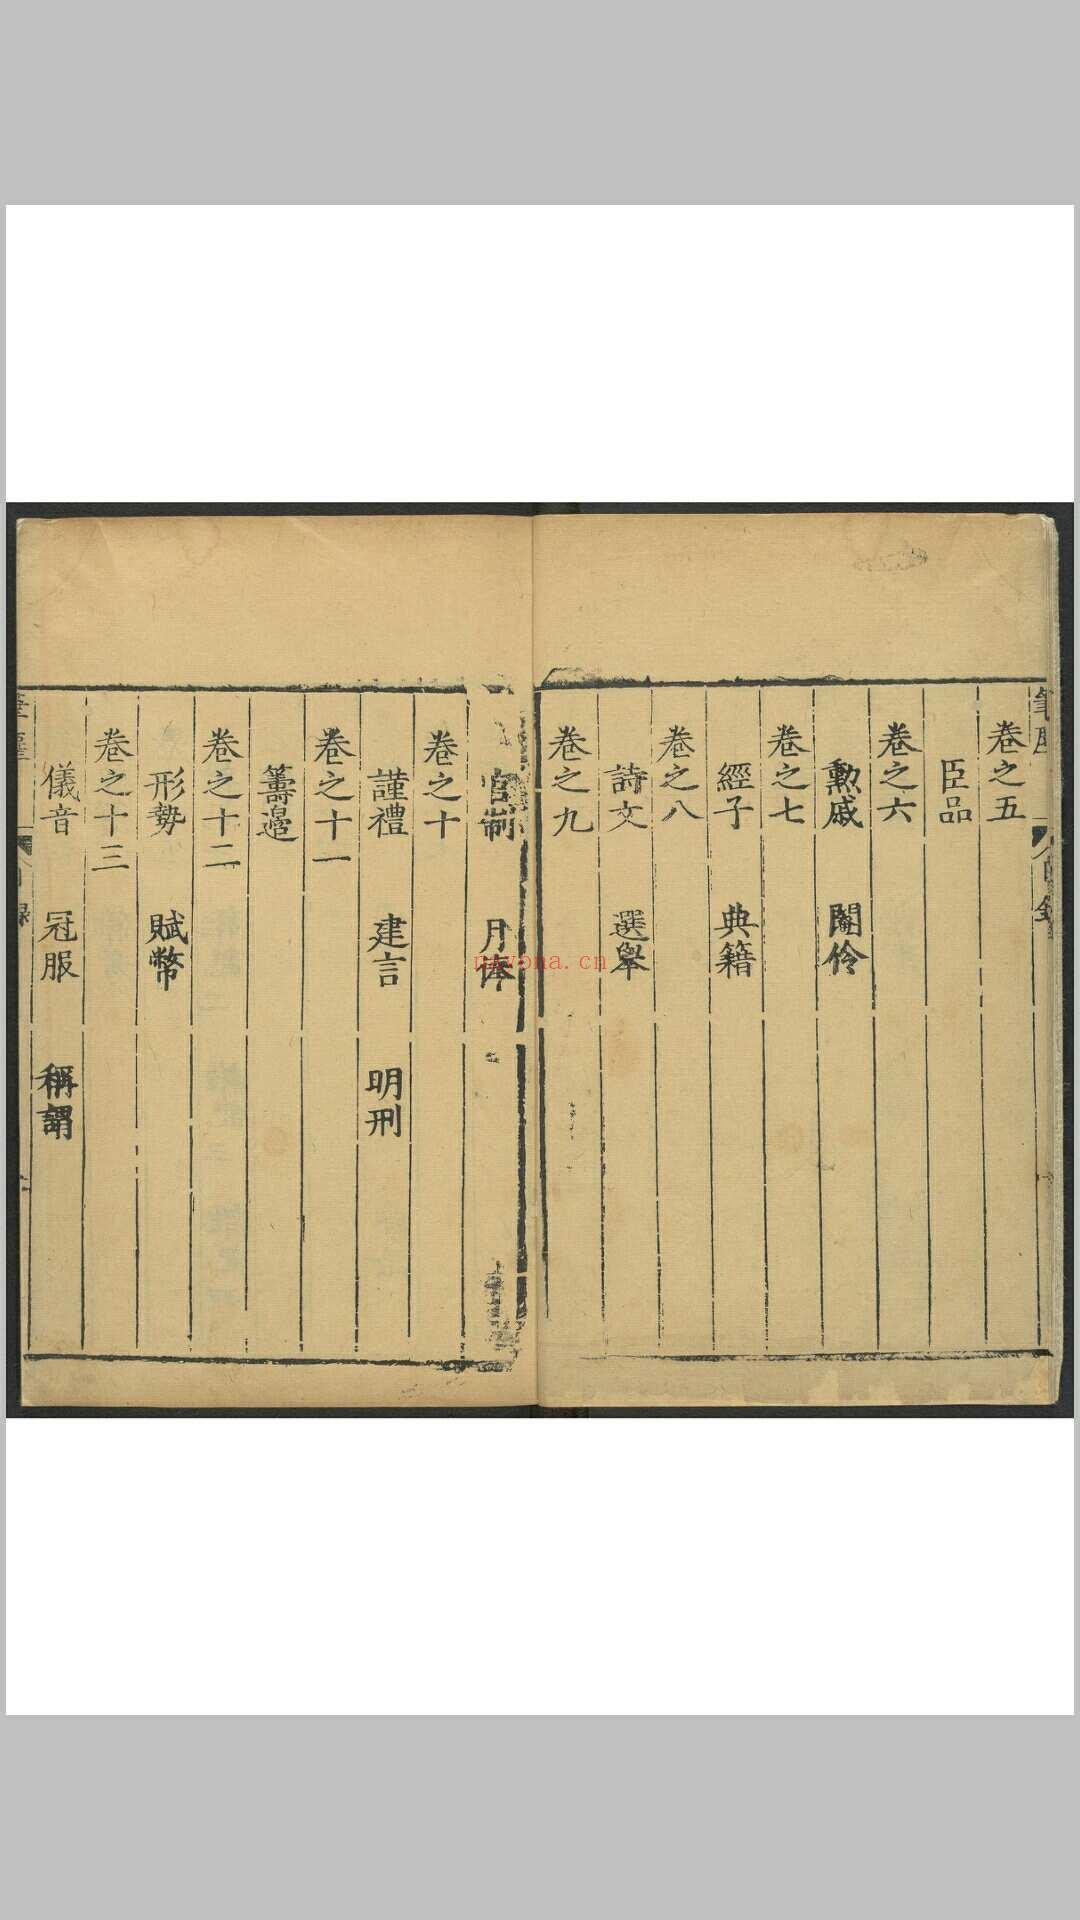 卷之五
臣品
卷之六
勲戚 閹伶
卷之七
經子 典籍
卷之八
詩文 選舉
卷之九
官制 月俸
卷之十
謹禮 建言 明刑
卷之十一
籌邉
卷之十二
形勢 賦幣
卷之十三
儀音 冠服 稱謂
navona.cn